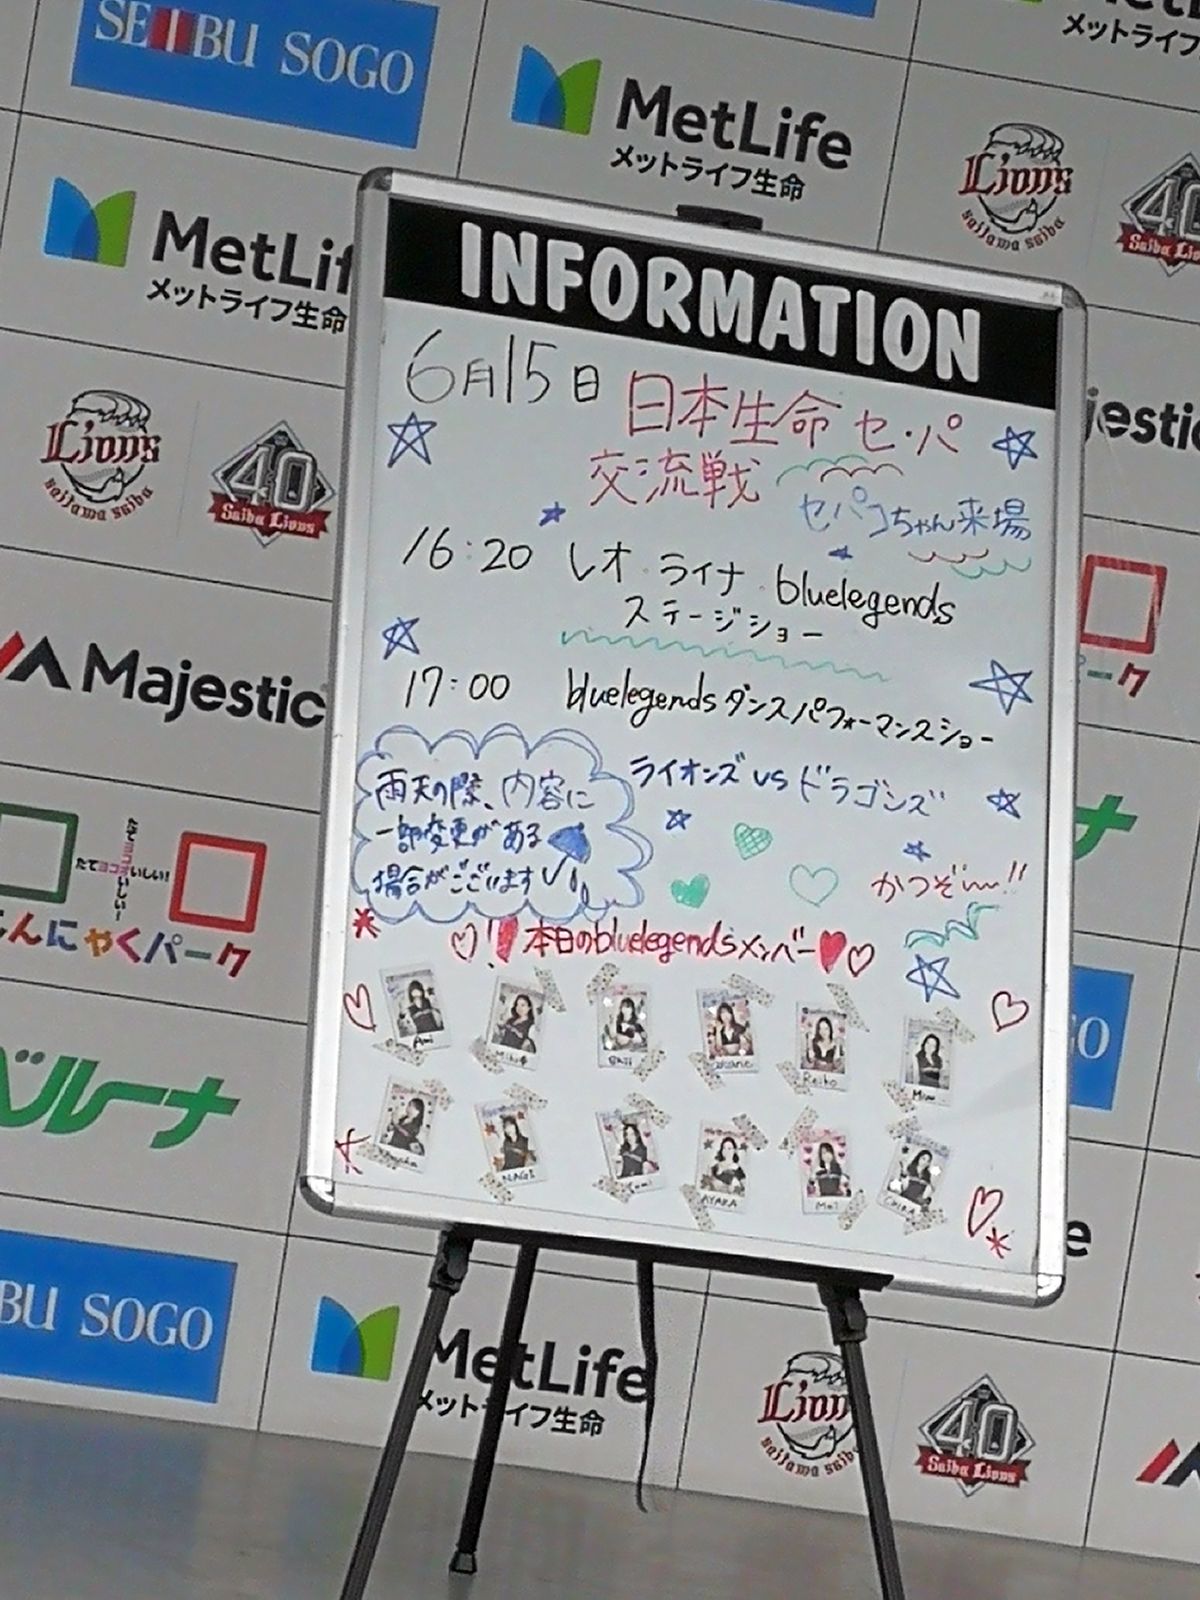 SEIBU SOGO
MetLife
メットライフ生命
Lions
saitama seibu
40
Seibu Lions
MetLif
メットライフ生命
Lions
saitama seibu
40
Seibu Lions
Majestic
たてヨコオいしい!
んにゃくパーク
ベルーナ
BU SOGO
INFORMATION
6月15日 日本生命セ・パ
交流戦
セパコちゃん来場
16:20 レオ ライナ bluelegends
ステージショー
17:00 bluelegendsダンスパフォーマンスショー
雨天の際、内容に
一部変更がある
場合がございます
ライオンズ vs ドラゴンズ
かつぞ〜!!
本日のbluelegendsメンバー
Ami
Reiko
NAGI
AYAKA
jestic
ーク
MetLife
メットライフ生命
Lion
saitama seibu
40
Seibu Lions